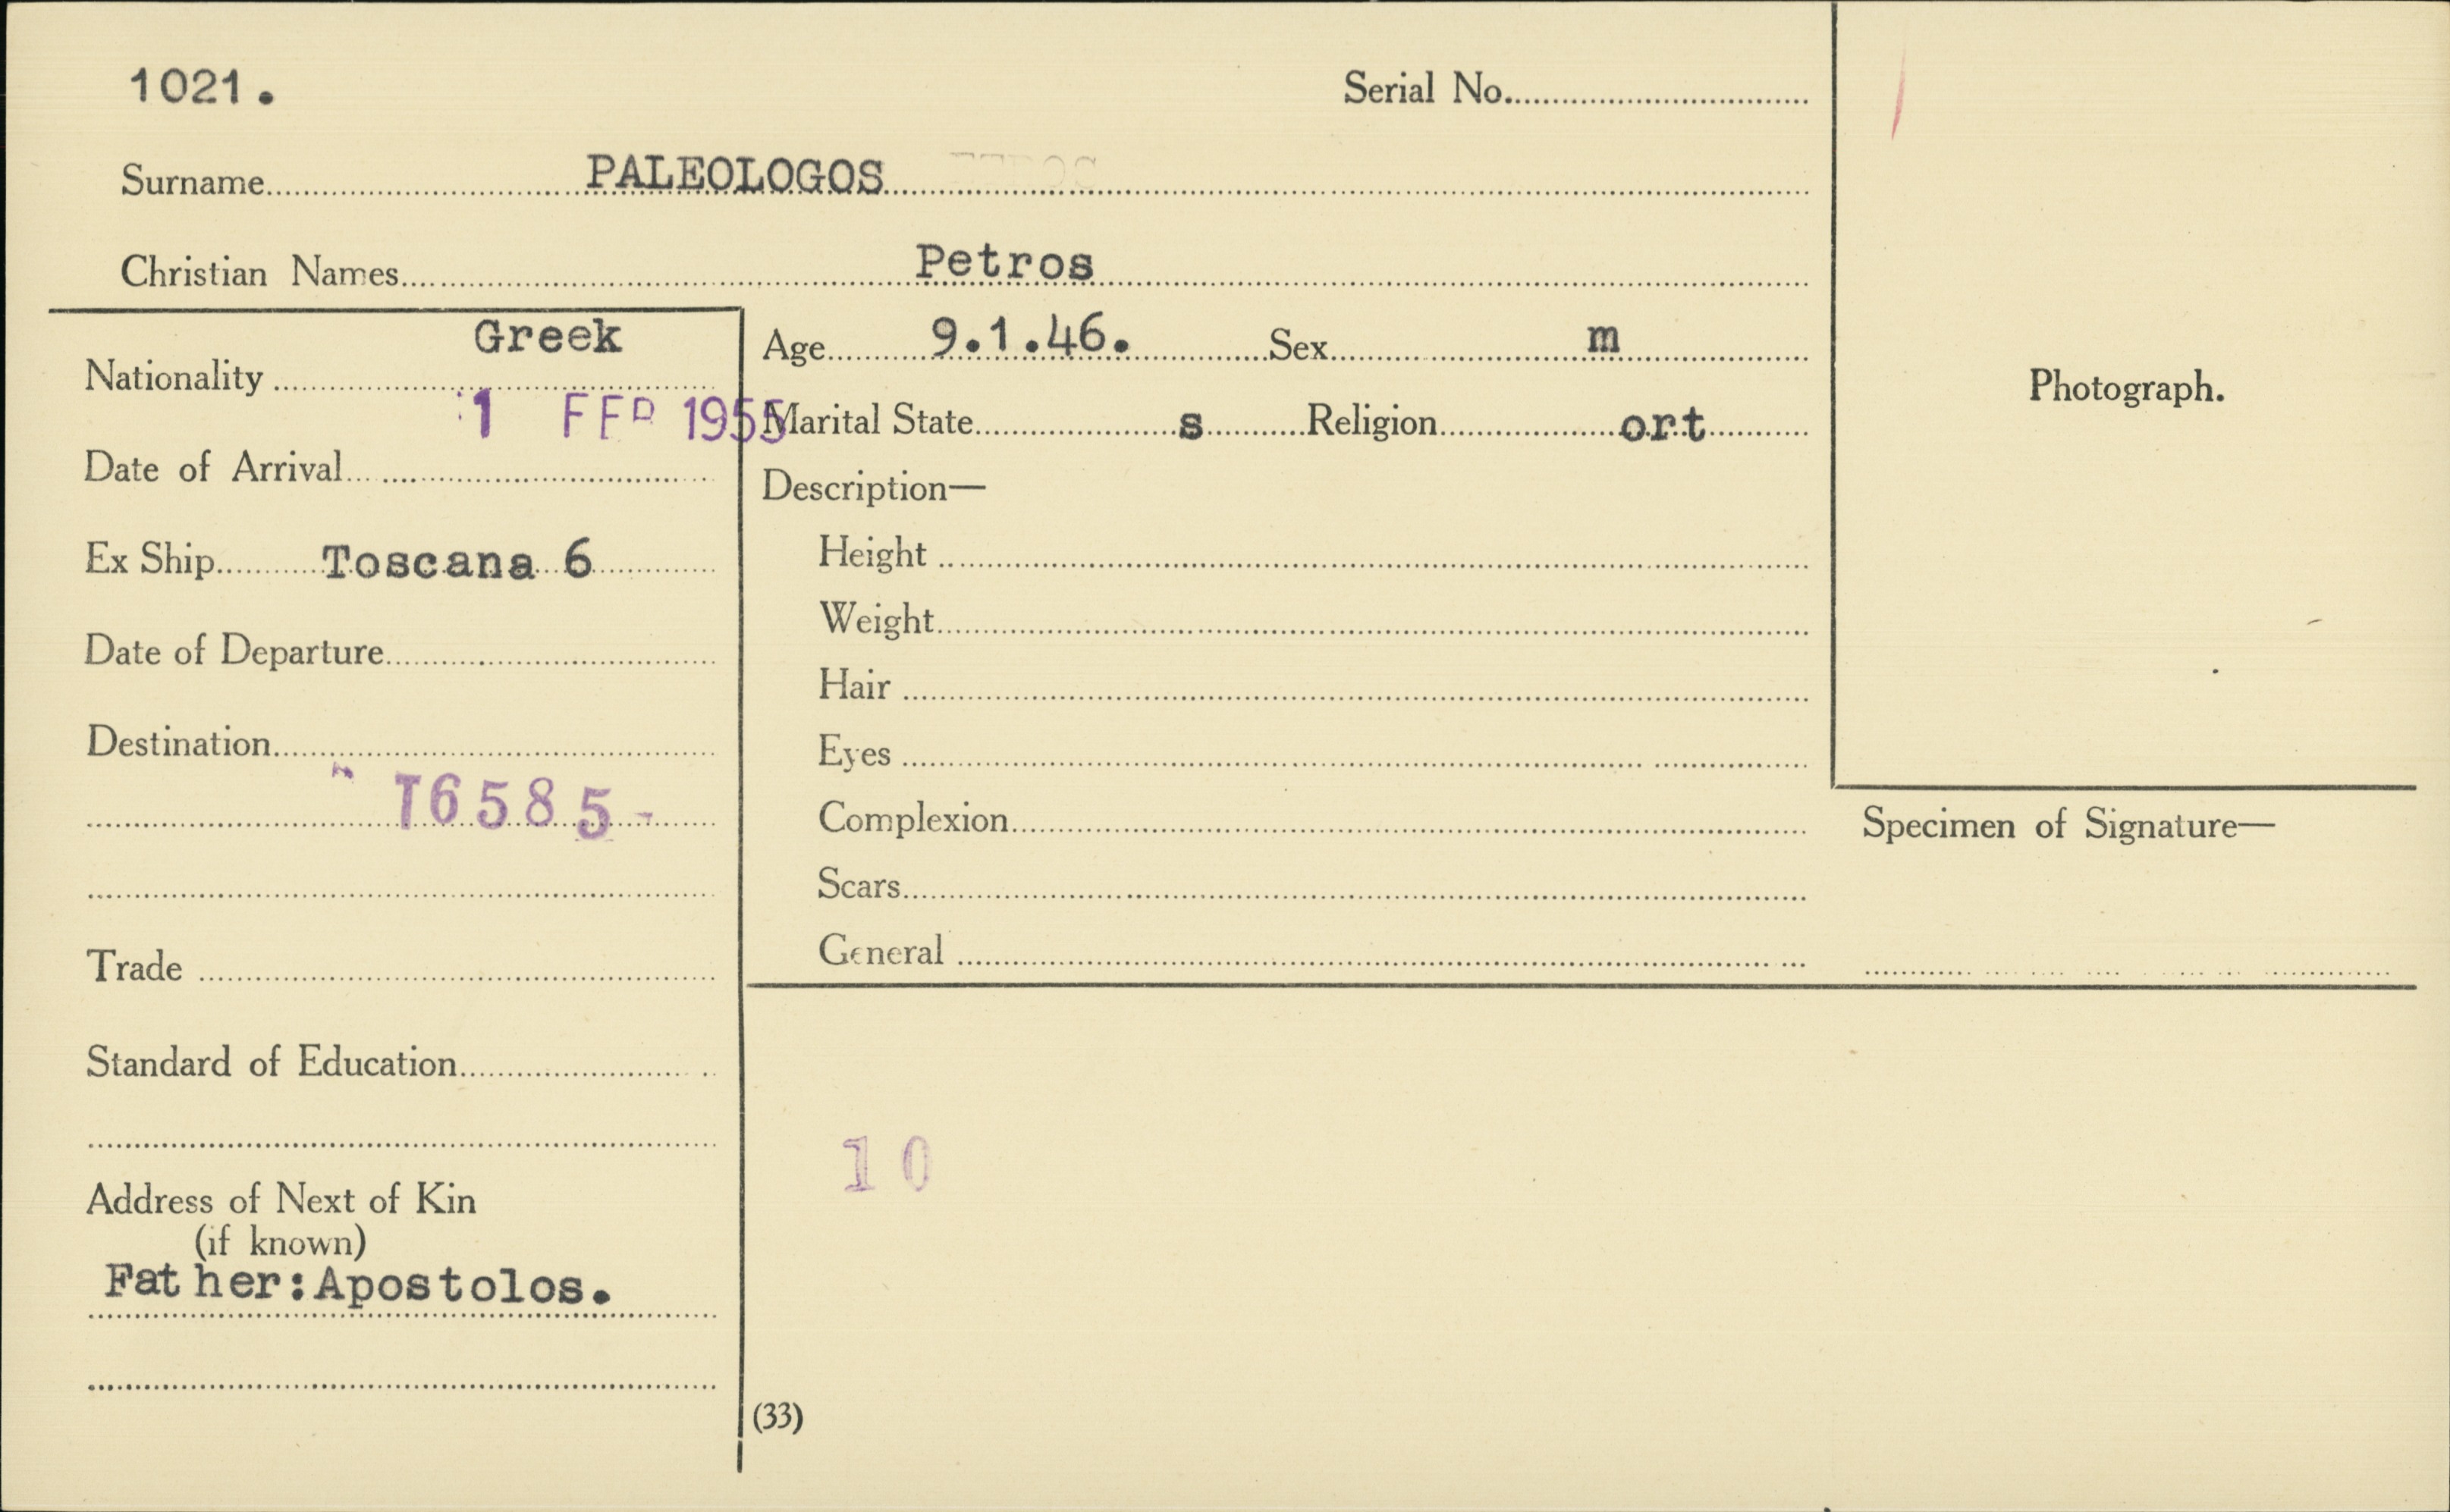 1021.
Serial No.
Surname PALEOLOGOS
Christian Names Petros
Nationality Greek
Age 9.1.46. Sex m
Date of Arrival 1 FEB 1955
Marital State s Religion ort
Description—
Ex Ship Toscana 6
Height
Weight
Date of Departure
Hair
Destination
Eyes
76585
Complexion
Scars
Trade
General
Photograph.
Specimen of Signature—
Standard of Education
10
Address of Next of Kin
(if known)
Father:Apostolos.
(33)